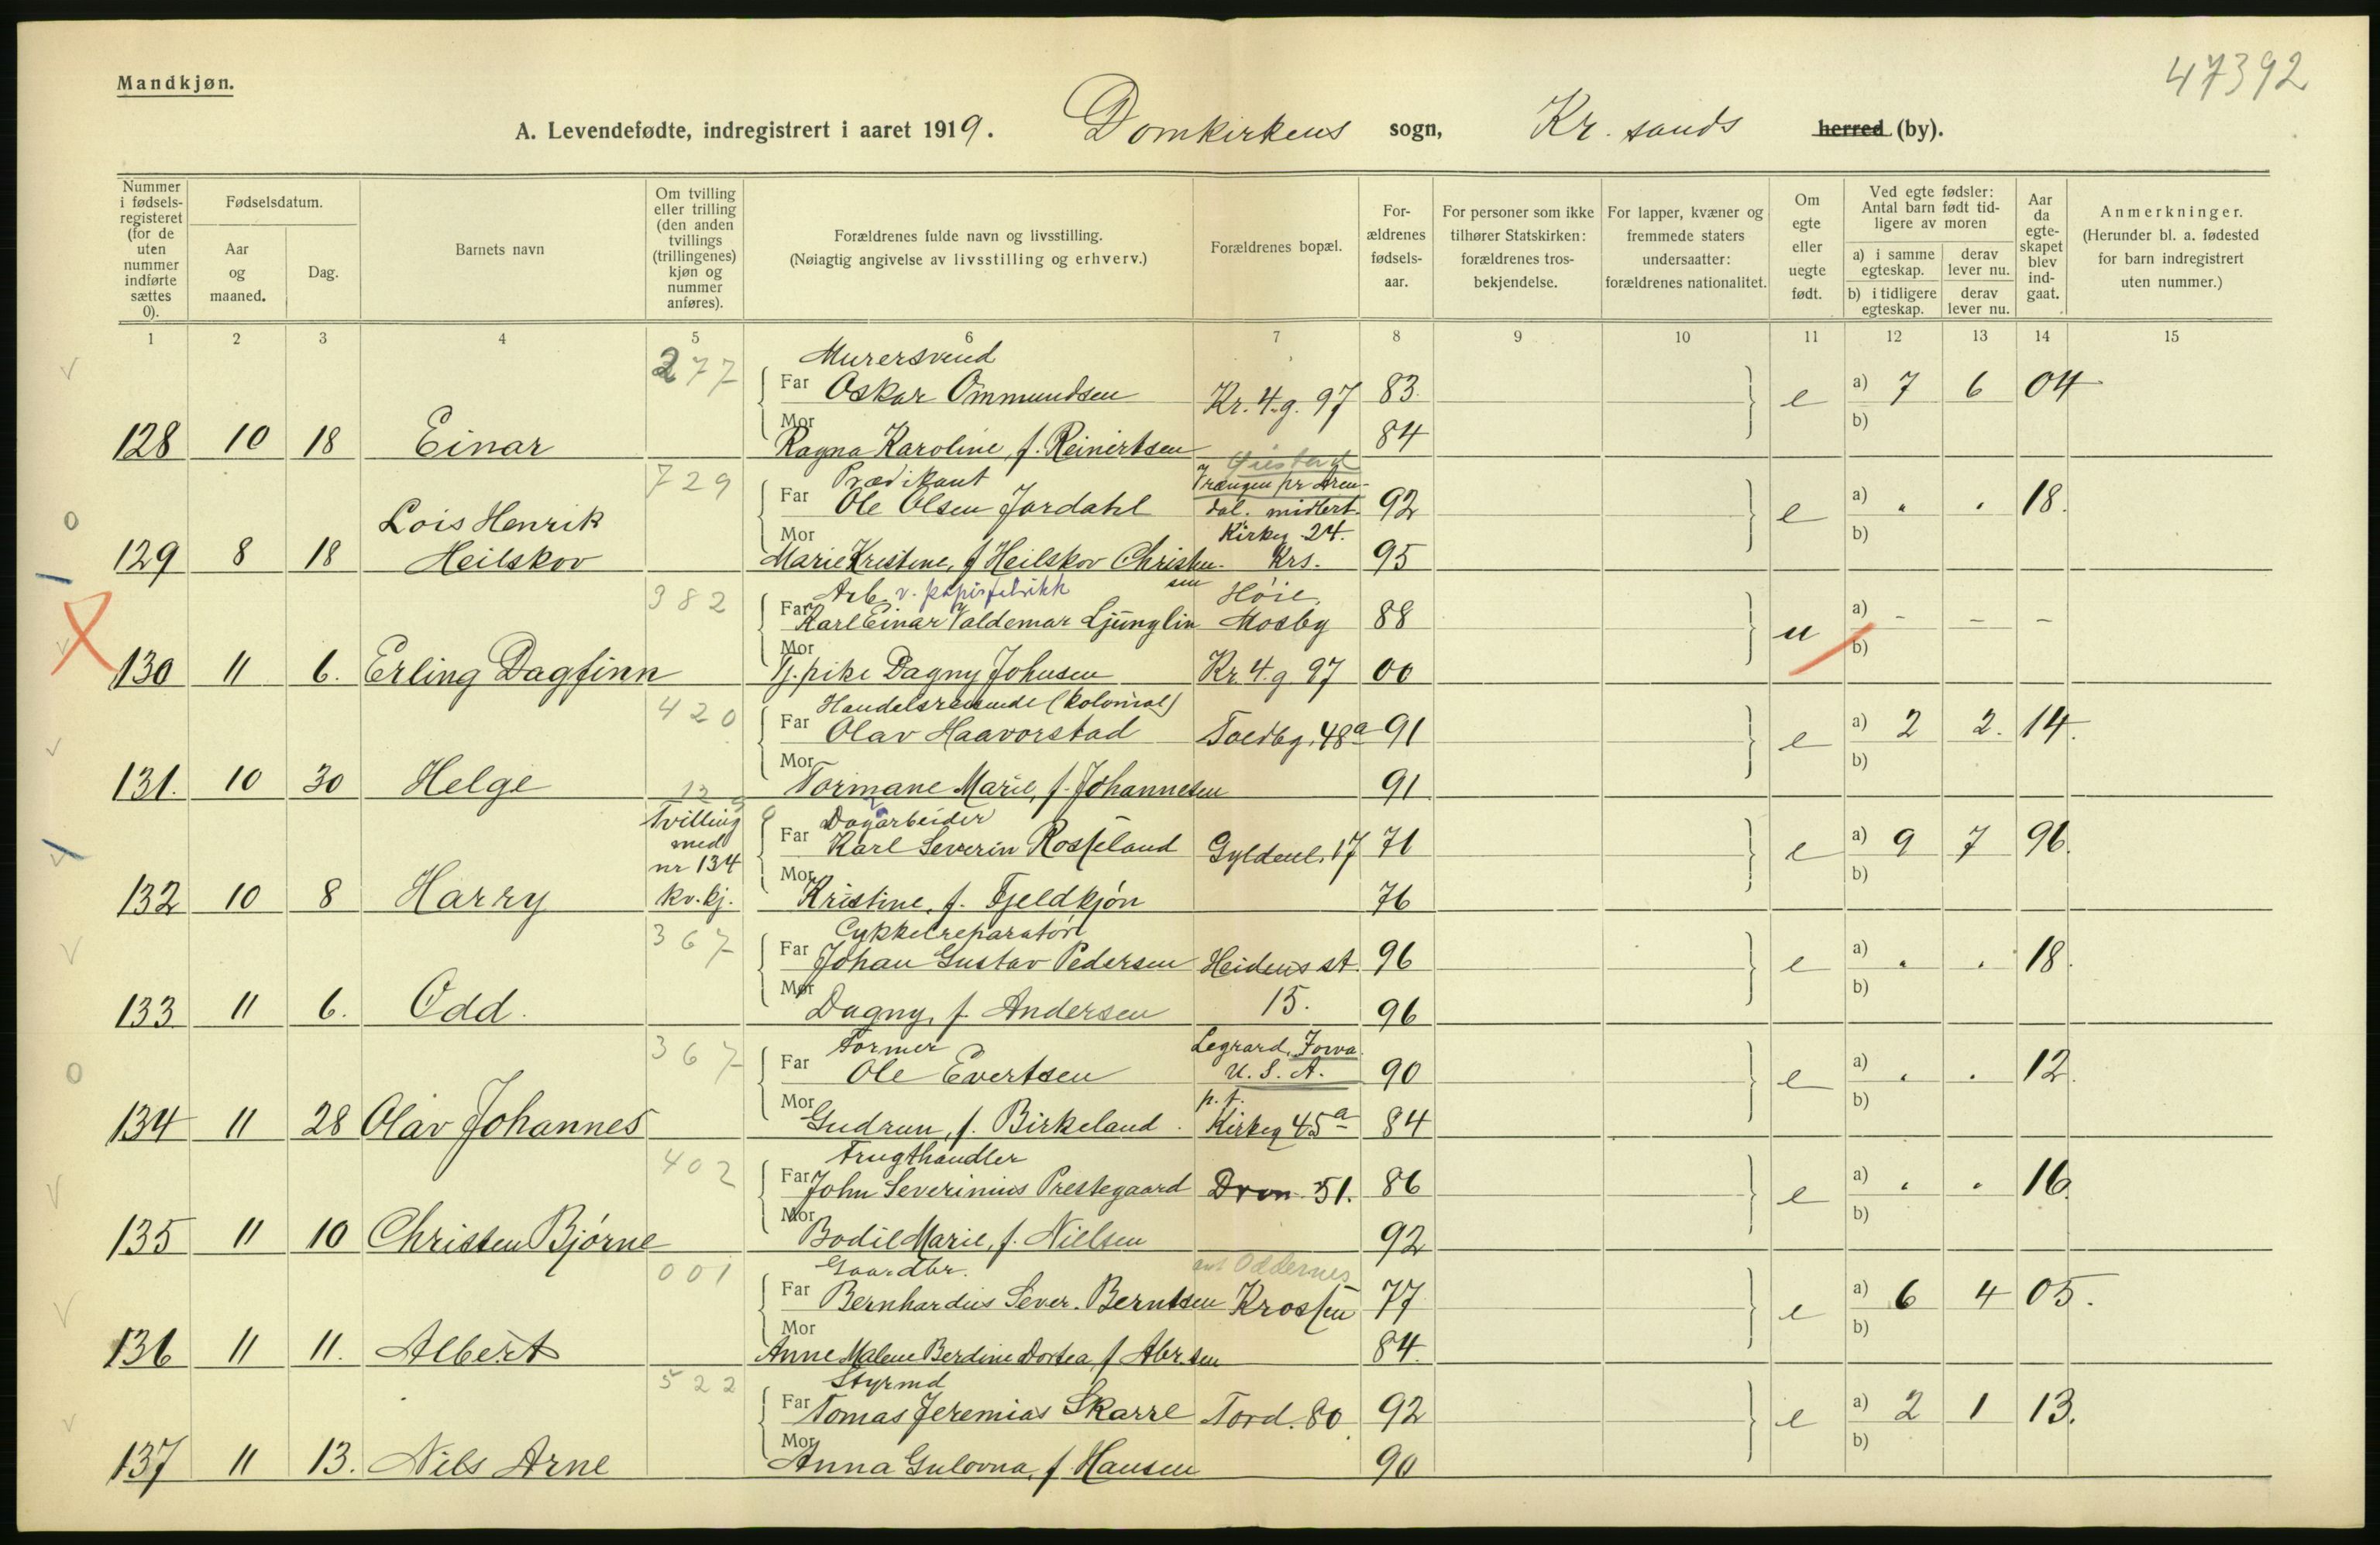 47392
Mandkjøn.
A. Levendefødte, indregistrert i aaret 1919. Domkirkens sogn, Kr. sands herred (by).
Nummer i fødsels-registeret (for de uten nummer indførte sættes 0).
Fødselsdatum.
Aar og maaned.
Dag.
Barnets navn
Om tvilling eller trilling (den anden tvillings (trillingenes) kjøn og nummer anføres).
Forældrenes fulde navn og livsstilling.
(Nøiagtig angivelse av livsstilling og erhverv.)
Forældrenes bopæl.
For-ældrenes fødsels-aar.
For personer som ikke tilhører Statskirken: forældrenes tros-bekjendelse.
For lapper, kvæner og fremmede staters undersaatter: forældrenes nationalitet.
Om egte eller uegte født.
Ved egte fødsler: Antal barn født tid-ligere av moren
a) i samme egteskap.
derav lever nu.
b) i tidligere egteskap.
derav lever nu.
Aar da egte-skapet blev ind-gaat.
Anmerkninger.
(Herunder bl. a. fødested for barn indregistrert uten nummer.)
1 2 3 4 5 6 7 8 9 10 11 12 13 14 15
277 Murersvend
Far Oskar Ommundsen Kr. 4. g. 97 83. e a) 7 6 04
128 10 18 Einar Mor Ragna Karoline, f. Reinertsen 84 b)
729 Prædikant
Far Ole Olsen Jordahl Trængen pr Aren-dal. midlert. 92 e a) 18.
Lois Henrik
129 8 18 Heilskov Mor Marie Kristine, f Heilskov Christen-sen Kirkeg 24. Krs. 95 b)
382 Arb. v. papirfabrikk
Far Karl Einar Valdemar Ljünglin Høie, Mosby 88 u a) - - -
130 11 6. Erling Dagfinn Mor Tj.pike Dagny Johnsen Kr 4. g 97 00 b)
420 Handelsreisende (kolonial)
Far Olav Haavorstad Toldbg. 48a 91 e a) 2 2. 14.
131. 10 30 Helge Mor Tormane Marie, f. Johannesen 91 b)
Tvilling med nr 134 kv. kj.
Dagarbeider
Far Karl Severin Rosseland Gyldenl. 17 71 e a) 9 7 96.
132 10 8 Harry Mor Kristine, f. Fjeldkjøn 76 b)
367 Cykkelreparatør
Far Johan Gustav Pedersen Heidens st. 96 e a) 18.
133 11 6. Odd. Mor Dagny, f. Andersen 15. 96 b)
367 Farmer
Far Ole Evertsen Legrard, Iowa. U. S. A. 90 e a) 12.
134 11 28 Olav Johannes Mor Gudrun, f. Birkeland. p. t. Kirkeg 45a 84 b)
402 Frugthandler
Far John Severinius Prestegaard Dron. 51. 86 e a) 16
135 11 10 Christen Bjørne Mor Bodil Marie, f. Nielsen 92 b)
001 Gaardbr. Oddernes
Far Bernhardus Sever. Berntsen Krossen 77 e a) 6 4 05.
136 11 11. Albert Mor Anne Malene Berdine Dortea, f Abr.sen 84. b)
522 Styrmd
Far Tomas Jeremias Skarre Tord. 80. 92 e a) 2 1 13.
137 11 13. Nils Arne Mor Anna Gulovna, f. Hansen 90 b)